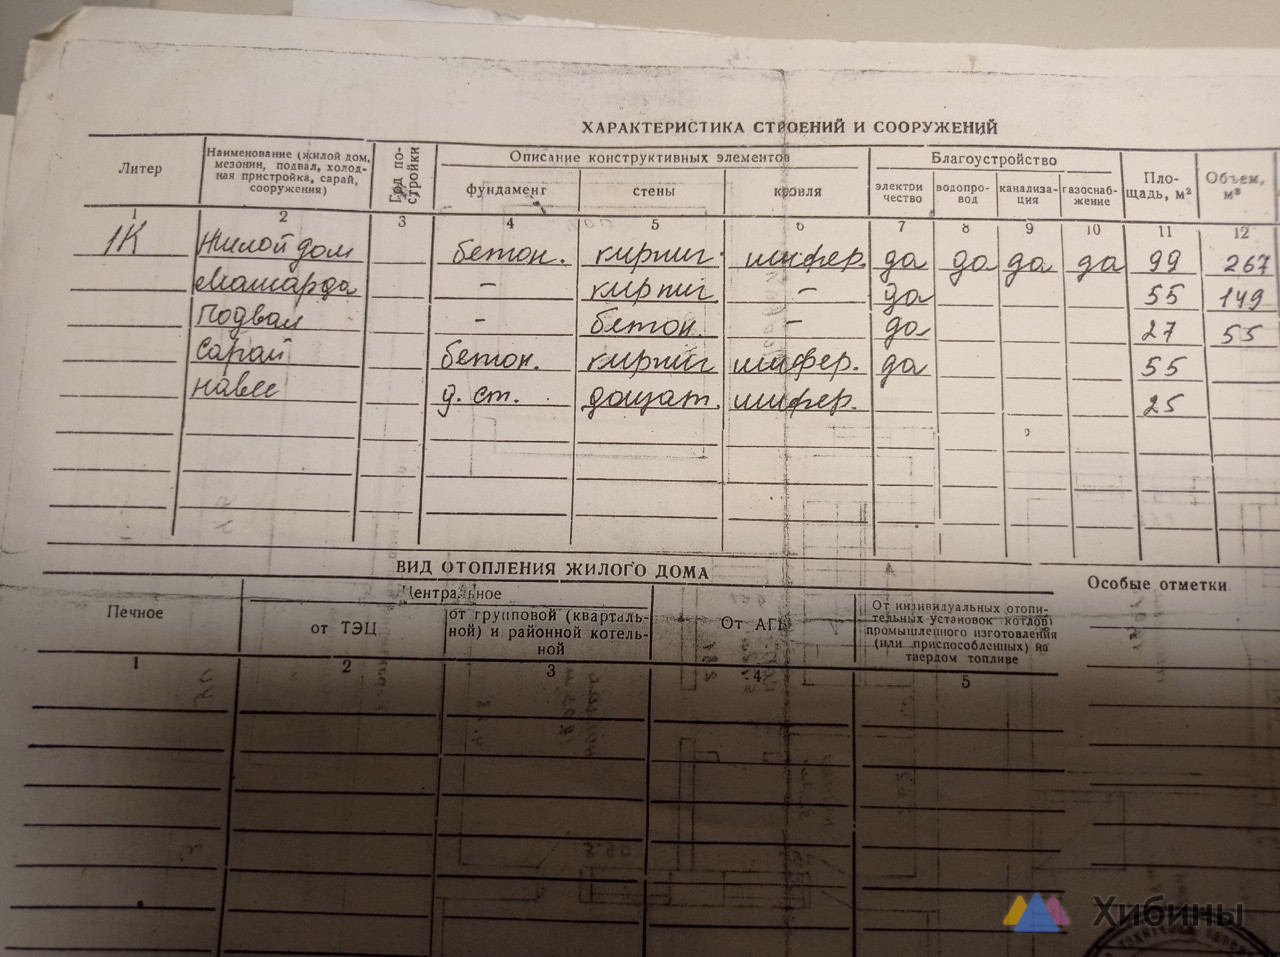 ХАРАКТЕРИСТИКА СТРОЕНИЙ И СООРУЖЕНИЙ
Литер
Наименование (жилой дом, мезонин, подвал, холодная пристройка, сарай, сооружения)
Год постройки
Описание конструктивных элементов
фундамент
стены
кровля
Благоустройство
электричество
водопровод
канализация
газоснабжение
Площадь, м²
Объем, м³
1 2 3 4 5 6 7 8 9 10 11 12
1К Жилой дом бетон. кирпич шифер. да да да да 99 267
Мансарда - кирпич - да 55 149
Подвал - бетон. - да 27 55
Сарай бетон. кирпич шифер. да 55
навес д. ст. дощат. шифер. 25
ВИД ОТОПЛЕНИЯ ЖИЛОГО ДОМА
Особые отметки
Печное
Центральное
от ТЭЦ
от групповой (квартальной) и районной котельной
От АГВ
От индивидуальных отопительных установок (котлов) промышленного изготовления (или приспособленных) на твердом топливе
1 2 3 4 5
Хибины